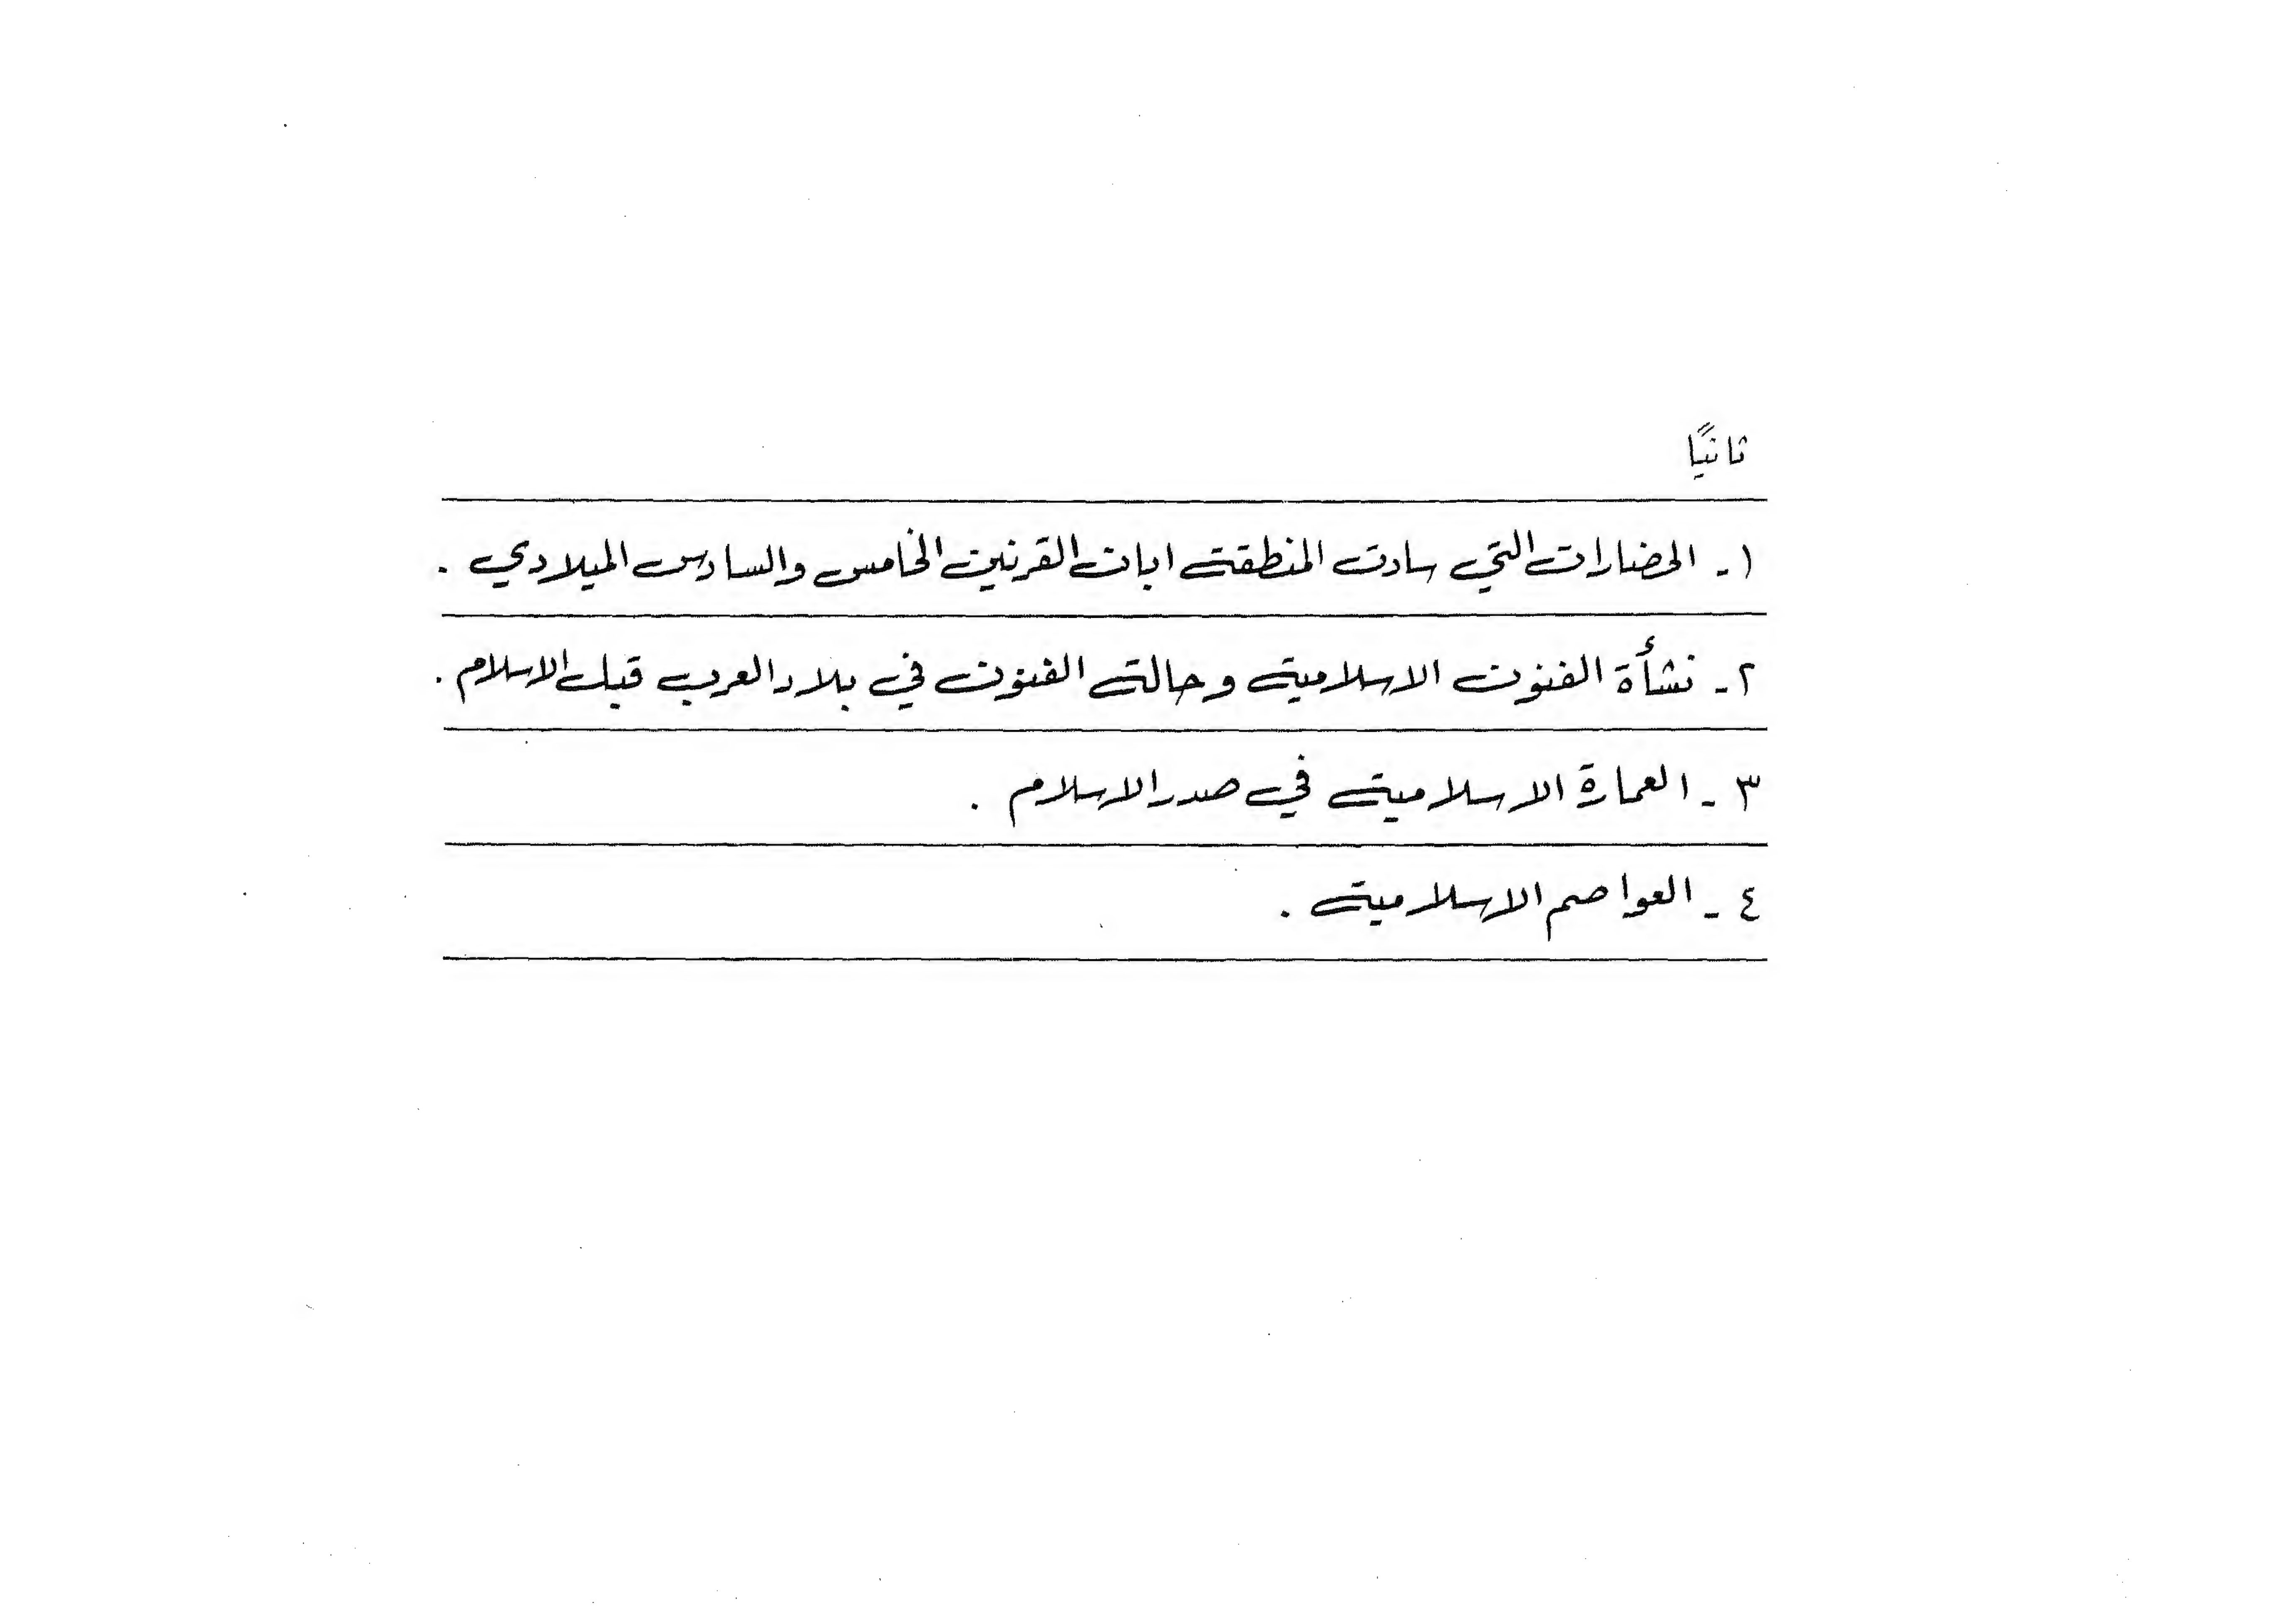 ثانيًا
١- الحضارات التي سادت المنطقة ابان القرنين الخامس والسادس الميلادي .
٢- نشأة الفنون الاسلامية وحالة الفنون في بلاد العرب قبل الاسلام .
٣- العمارة الاسلامية في صدر الاسلام .
٤- العواصم الاسلامية .